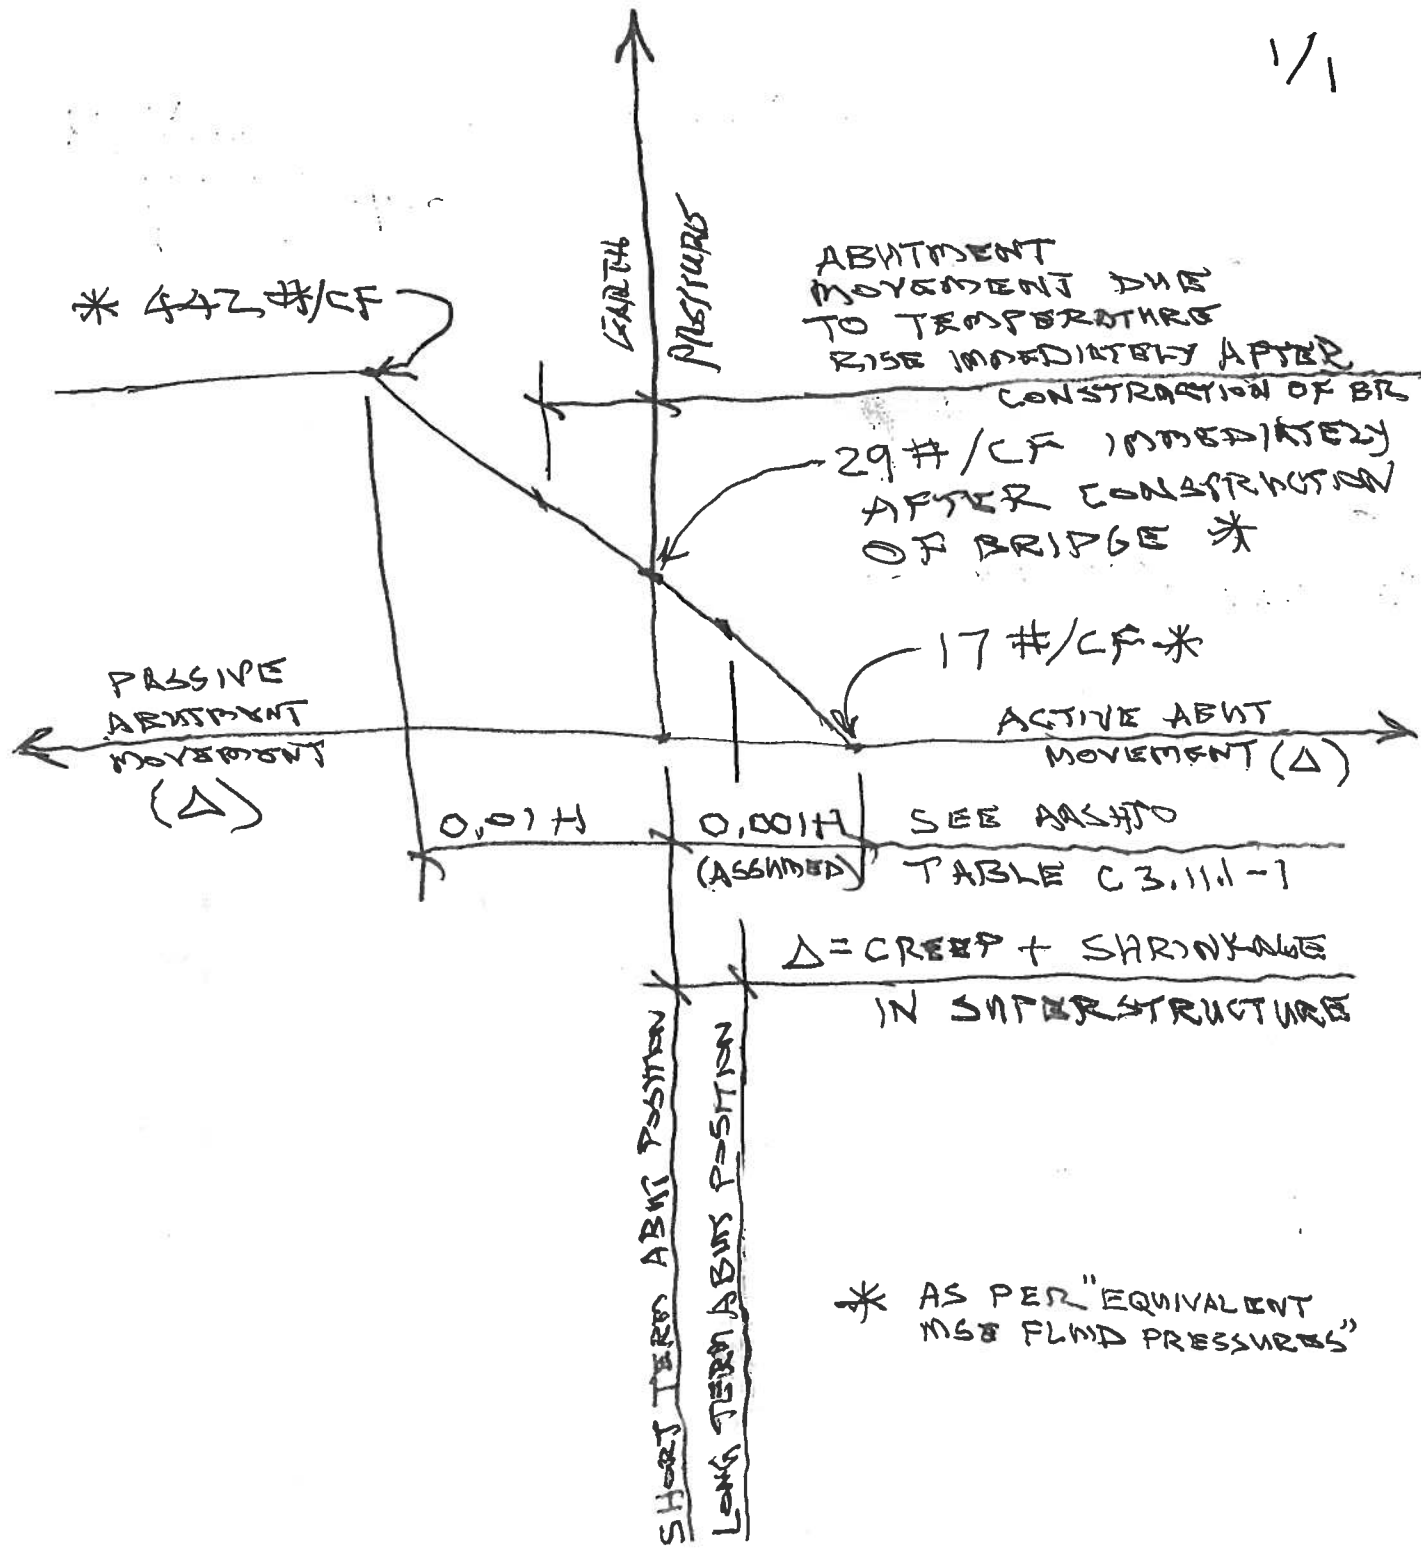 1/1
EARTH
PRESSURE
* 442 #/CF
ABUTMENT
MOVEMENT DUE
TO TEMPERATURE
RISE IMMEDIATELY AFTER
CONSTRACTION OF BR
29 #/CF IMMEDIATELY
AFTER CONSTRUCTION
OF BRIDGE *
17 #/CF *
PASSIVE
ABUTMENT
MOVEMENT
(Δ)
ACTIVE ABUT
MOVEMENT (Δ)
0.01 H
0.001H
(ASSUMED)
SEE AASHTO
TABLE C 3.11.1-1
Δ = CREEP + SHRINKAGE
IN SUPERSTRUCTURE
SHORT TERM ABUT POSITION
LONG TERM ABUT POSITION
* AS PER "EQUIVALENT
MSE FLUID PRESSURES"